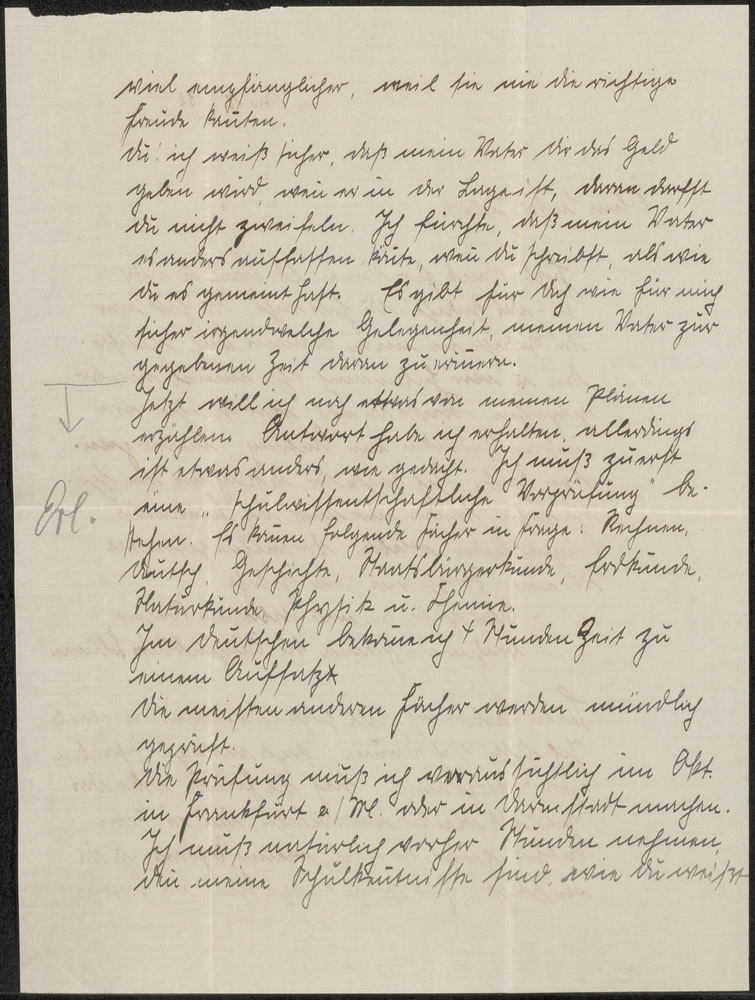 viel empfänglicher, weil sie nie die richtige
Freude kannten.
Du! ich weiß sicher, daß mein Vater Dir das Geld
geben wird, wenn er in der Lage ist, daran darfst
Du nicht zweifeln. Ich fürchte, daß mein Vater
es anders auffassen könnte, wenn Du schreibst, als wie
Du es gemeint hast. Es gibt für Dich wie für mich
sicher irgendwelche Gelegenheit, meinen Vater zur
gegebenen Zeit daran zu erinnern.
Jetzt will ich noch etwas von meinen Plänen
erzählen. Antwort habe ich erhalten, allerdings
ist etwas anders, wie gedacht. Ich muß zuerst
eine „schulwissentschaftliche Vorprüfung" be-
Erl.
stehen. Es kommen folgende Fächer in Frage: Rechnen,
Deutsch, Geschichte, Staatsbürgerkunde, Erdkunde,
Naturkunde, Physik u. Chemie.
Im Deutschen bekomme ich 4 Stunden Zeit zu
einem Aufsatz
Die meisten anderen Fächer werden mündlich
geprüft.
Die Prüfung muß ich voraussichtlich im Okt.
in Frankfurt a/M. oder in Darmstadt machen.
Ich muß natürlich vorher Stunden nehmen,
denn meine Schulkenntnisse sind, wie Du weißt